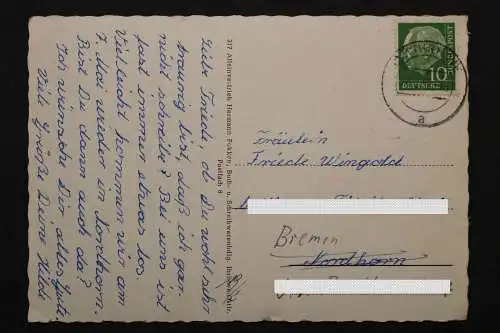 Liebe Friedl, ob Du wohl sehr
traurig bist, daß ich gar
nicht schreibe? Bei uns ist
fast immer etwas los.
Vielleicht kommen wir am
7. Mai wieder in Nordhorn.
Bist Du dann auch da?
Ich wünsche Dir alles Gute.
Viele Grüße Deine Hilde
217 Alleinvertrieb Hermann Fokken, Buch- u. Schreibwarenhdlg.
Postfach 8
10
DEUTSCHE
a
Fräulein
Friedl Wingold
Bremen
Nordhorn